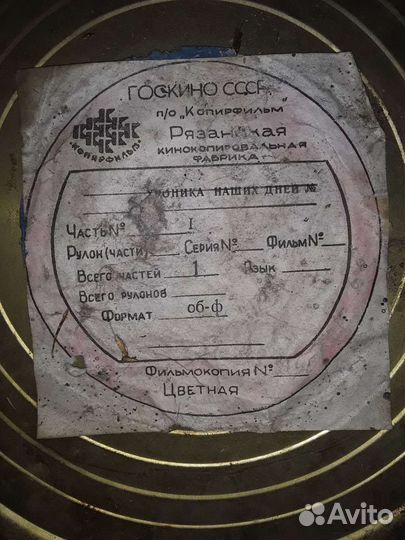 ГОСКИНО СССР
п/о „Копирфильм"
Рязанская
кинокопировальная
фабрика
КОПИРФИЛЬМ
ХРОНИКА НАШИХ ДНЕЙ №
Часть № I
Рулон (части) Серия № Фильм №
Всего частей 1 Язык
Всего рулонов
Формат об-ф
Фильмокопия №
Цветная
Avito